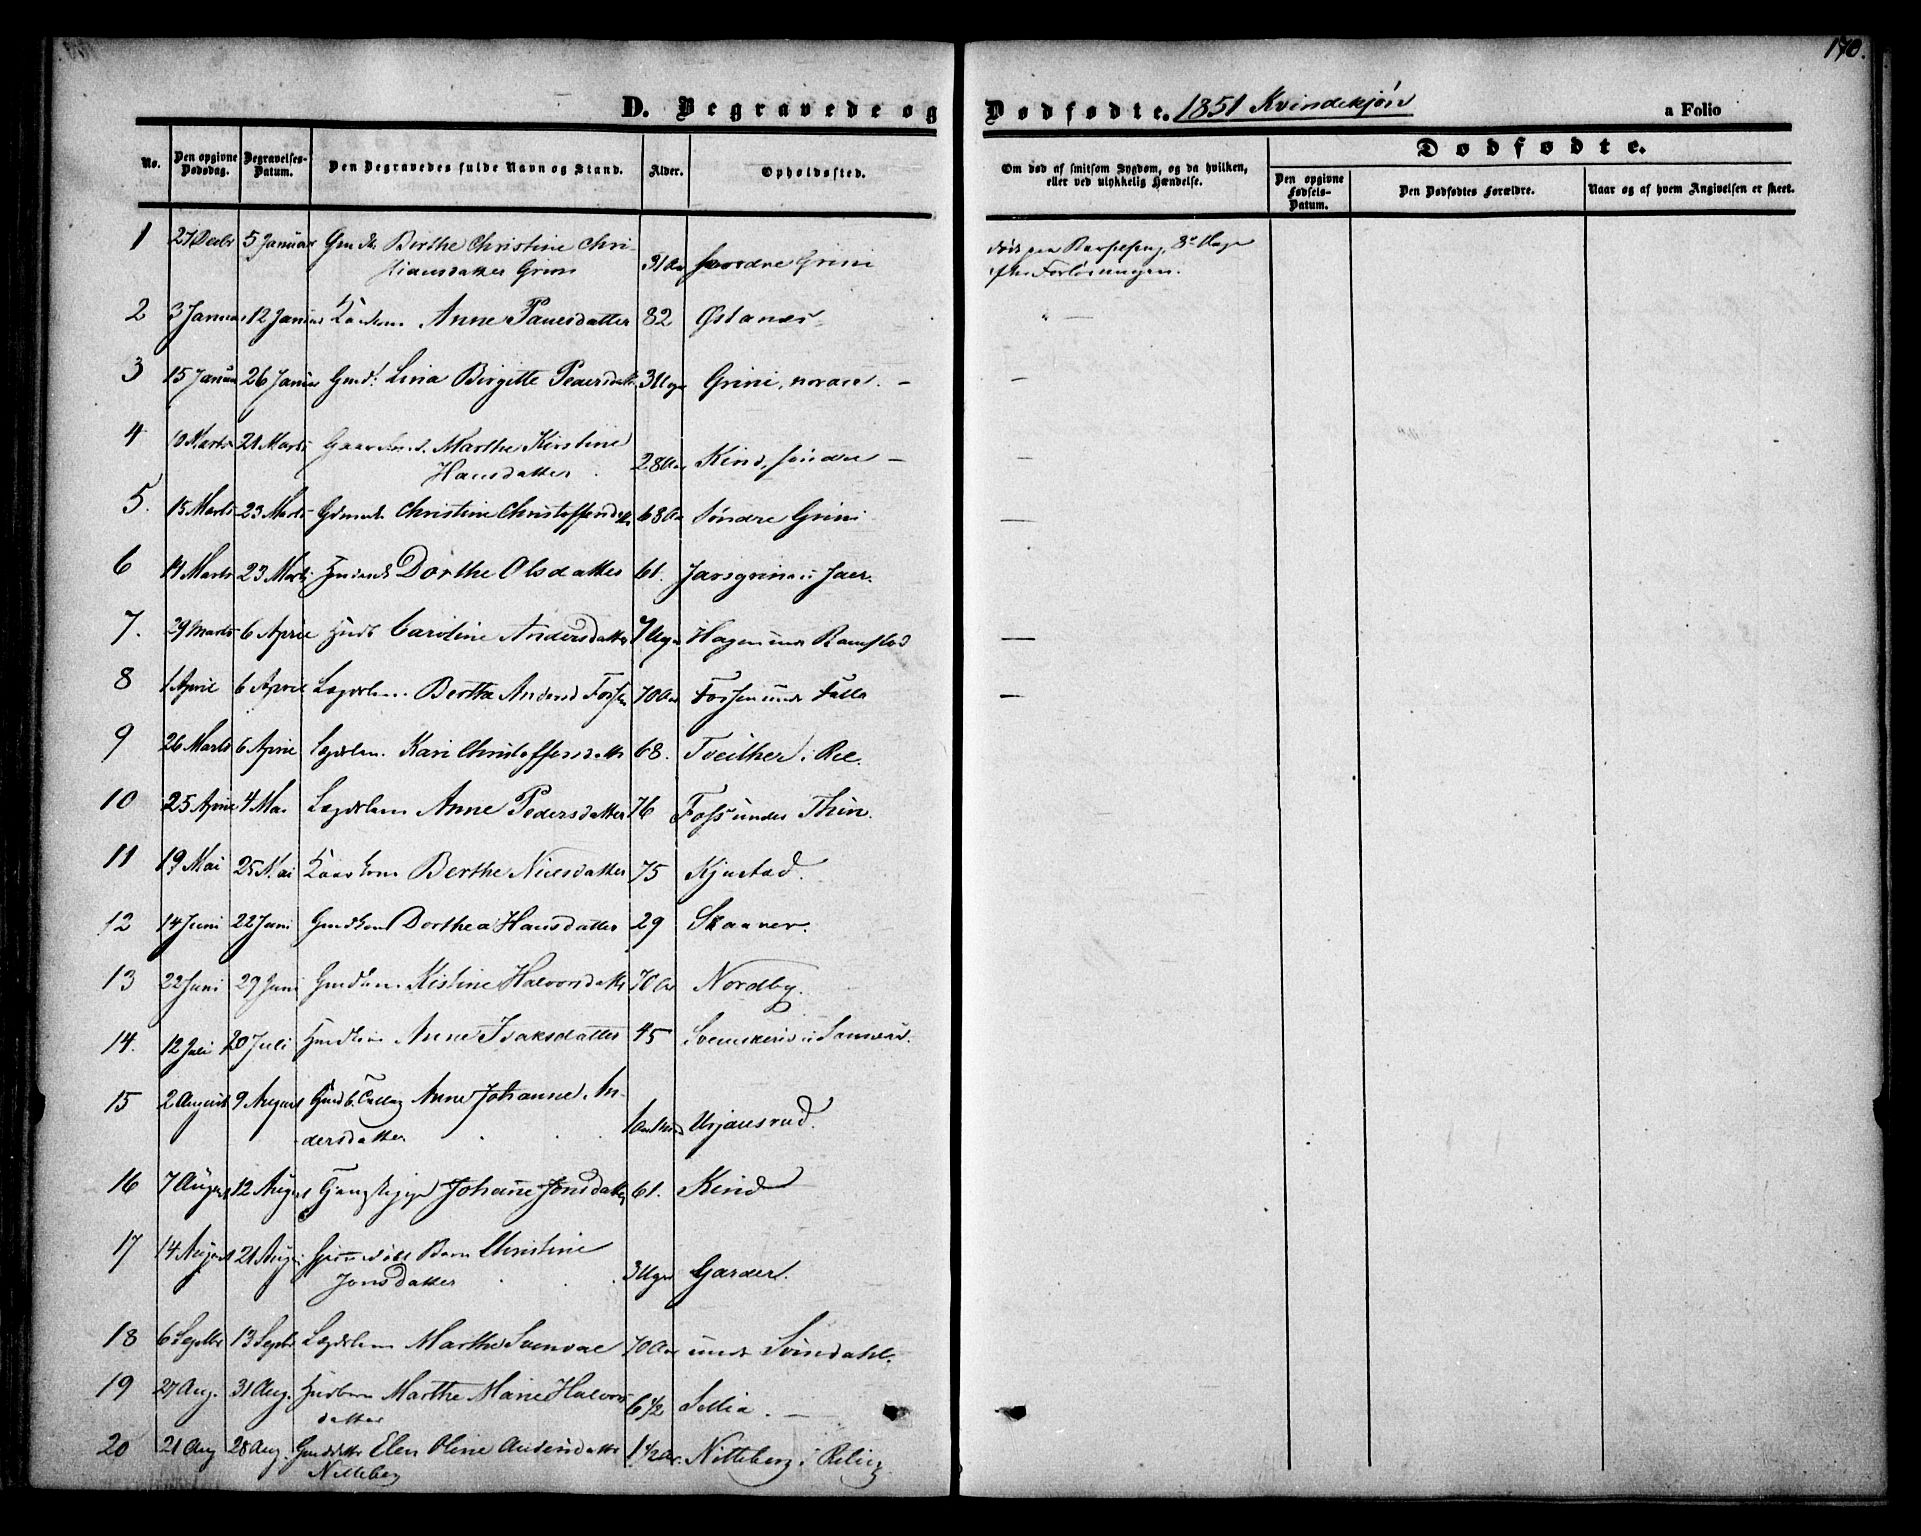 170.
D. Begravede og Dødfødte. 1851 Kvindekjøn a Folio
No. Den opgivne Dødsdag. Begravelses-Datum. Den Begravedes fulde Navn og Stand. Alder. Opholdssted. Om død af smitsom Sygdom, og da hvilken, eller ved ulykkelig Hændelse. Dødfødte. Den opgivne Fødsels-Datum. Den Dødfødtes Forældre. Naar og af hvem Angivelsen er skeet.
1 27 Decbr 5 Januar Gmdk. Berthe Christine Chri-
stiansdatter Grini 31 Aar søndre Grini død paa Barselseng, 8de Dage
efter Forløsningen.
2 3 Januar 12 Januar Anne Paulsdatter 82 Østanes -
3 15 Januar 26 Januar Gmdd. Lina Birgitte Pedersdatt 3 Uger Grini, nordre. - —
4 10 Marts 21 Marts Marthe Kirstine
Hansdatter 28 Aar Kind, søndre - —
5. 15 Marts 23 Marts Christine Christoffersdttr 68 Aar Søndre Grini —
6 14 Marts 23 Marts Dorthe Olsdatter 61. i Jaer.
7. 29 Marts 6 April Caroline Andersdatter 7 Uger Hagen under Ramstad —
8 1 April 6 April Lægdslem Berthe Andersd Fossen 70 Aar Fossen under Falla —
9 26 Marts 6 April Lægdslem Kari Christoffersdatt 68.
10 25 April 4 Mai Lægdslem Anne Pedersdatter 76 Foss under Thien.
11 19 Mai 25 Mai Berthe Nielsdatter 75 Kjustad.
12 14 Juni 22 Juni Gmdkone Dorthea Hansdatter 29 Skaaner.
13 22 Juni 29 Juni Kistine Halvorsdatt 70 Aar Nordby.
14. 12 Juli 20 Juli Anne Isaksdatter 45
15 2 August 9 August Anne Johanne An-
dersdatter Urjansrud.
16 7 August 12 August Johanne Jonsdatter 61. Kind
17 14 August 21 Augu Barn Christine
Jonsdatter 3 Uger Garder.
18 6 Septbr 13 Septbr Lægdslem Marthe 70 Aar under Svindahl.
19 27 Aug. 31 Aug. Marthe Marie Halvors
datter 6 1/2 Sellia. —
20 21 Aug 28 Aug. Elen Oline Andersdatter
Nitteberg 1 1/2 Aar. Nitteberg i